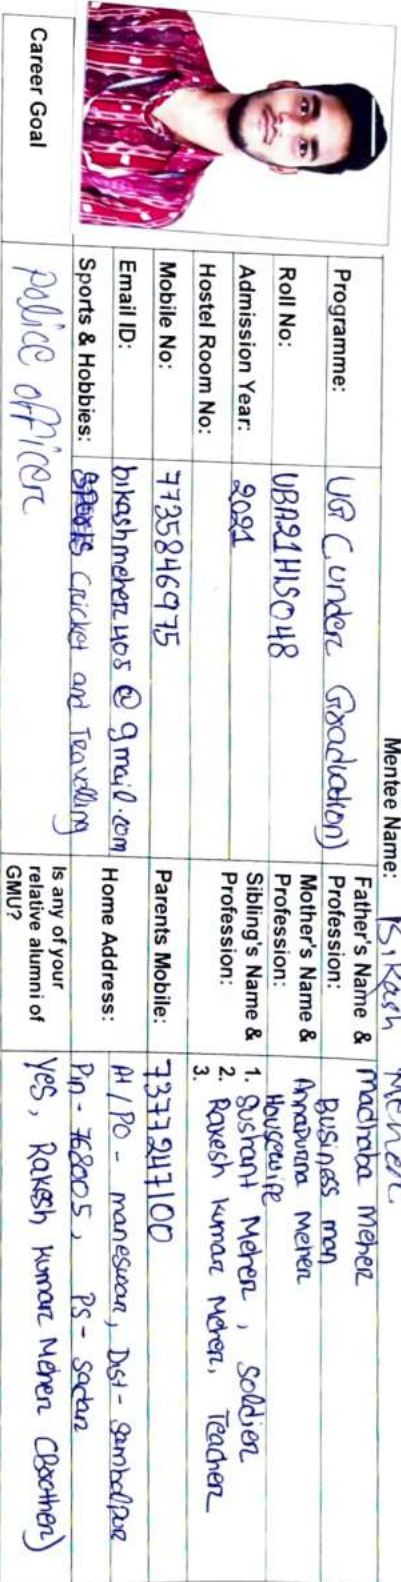 Mentee Name: Bikash Meher
Programme: UG (under Graduation)
Father's Name & Profession: madhaba meher Business man
Roll No: UBA21HIS048
Mother's Name & Profession: Annapurna Meher Housewife
Admission Year: 2021
Sibling's Name & Profession:
1. Sushant Meher, Soldier
2. Rakesh kumar Meher, Teacher
3.
Hostel Room No:
Mobile No: 7735846975
Parents Mobile: 7377247100
Email ID: bikashmeher405@gmail.com
Home Address: At/PO - maneswar, Dist - Sambalpur
Pin - 768005, PS - Sadar
Sports & Hobbies: Cricket and Travelling
Is any of your relative alumni of GMU? Yes, Rakesh kumar Meher (Brother)
Career Goal police officer